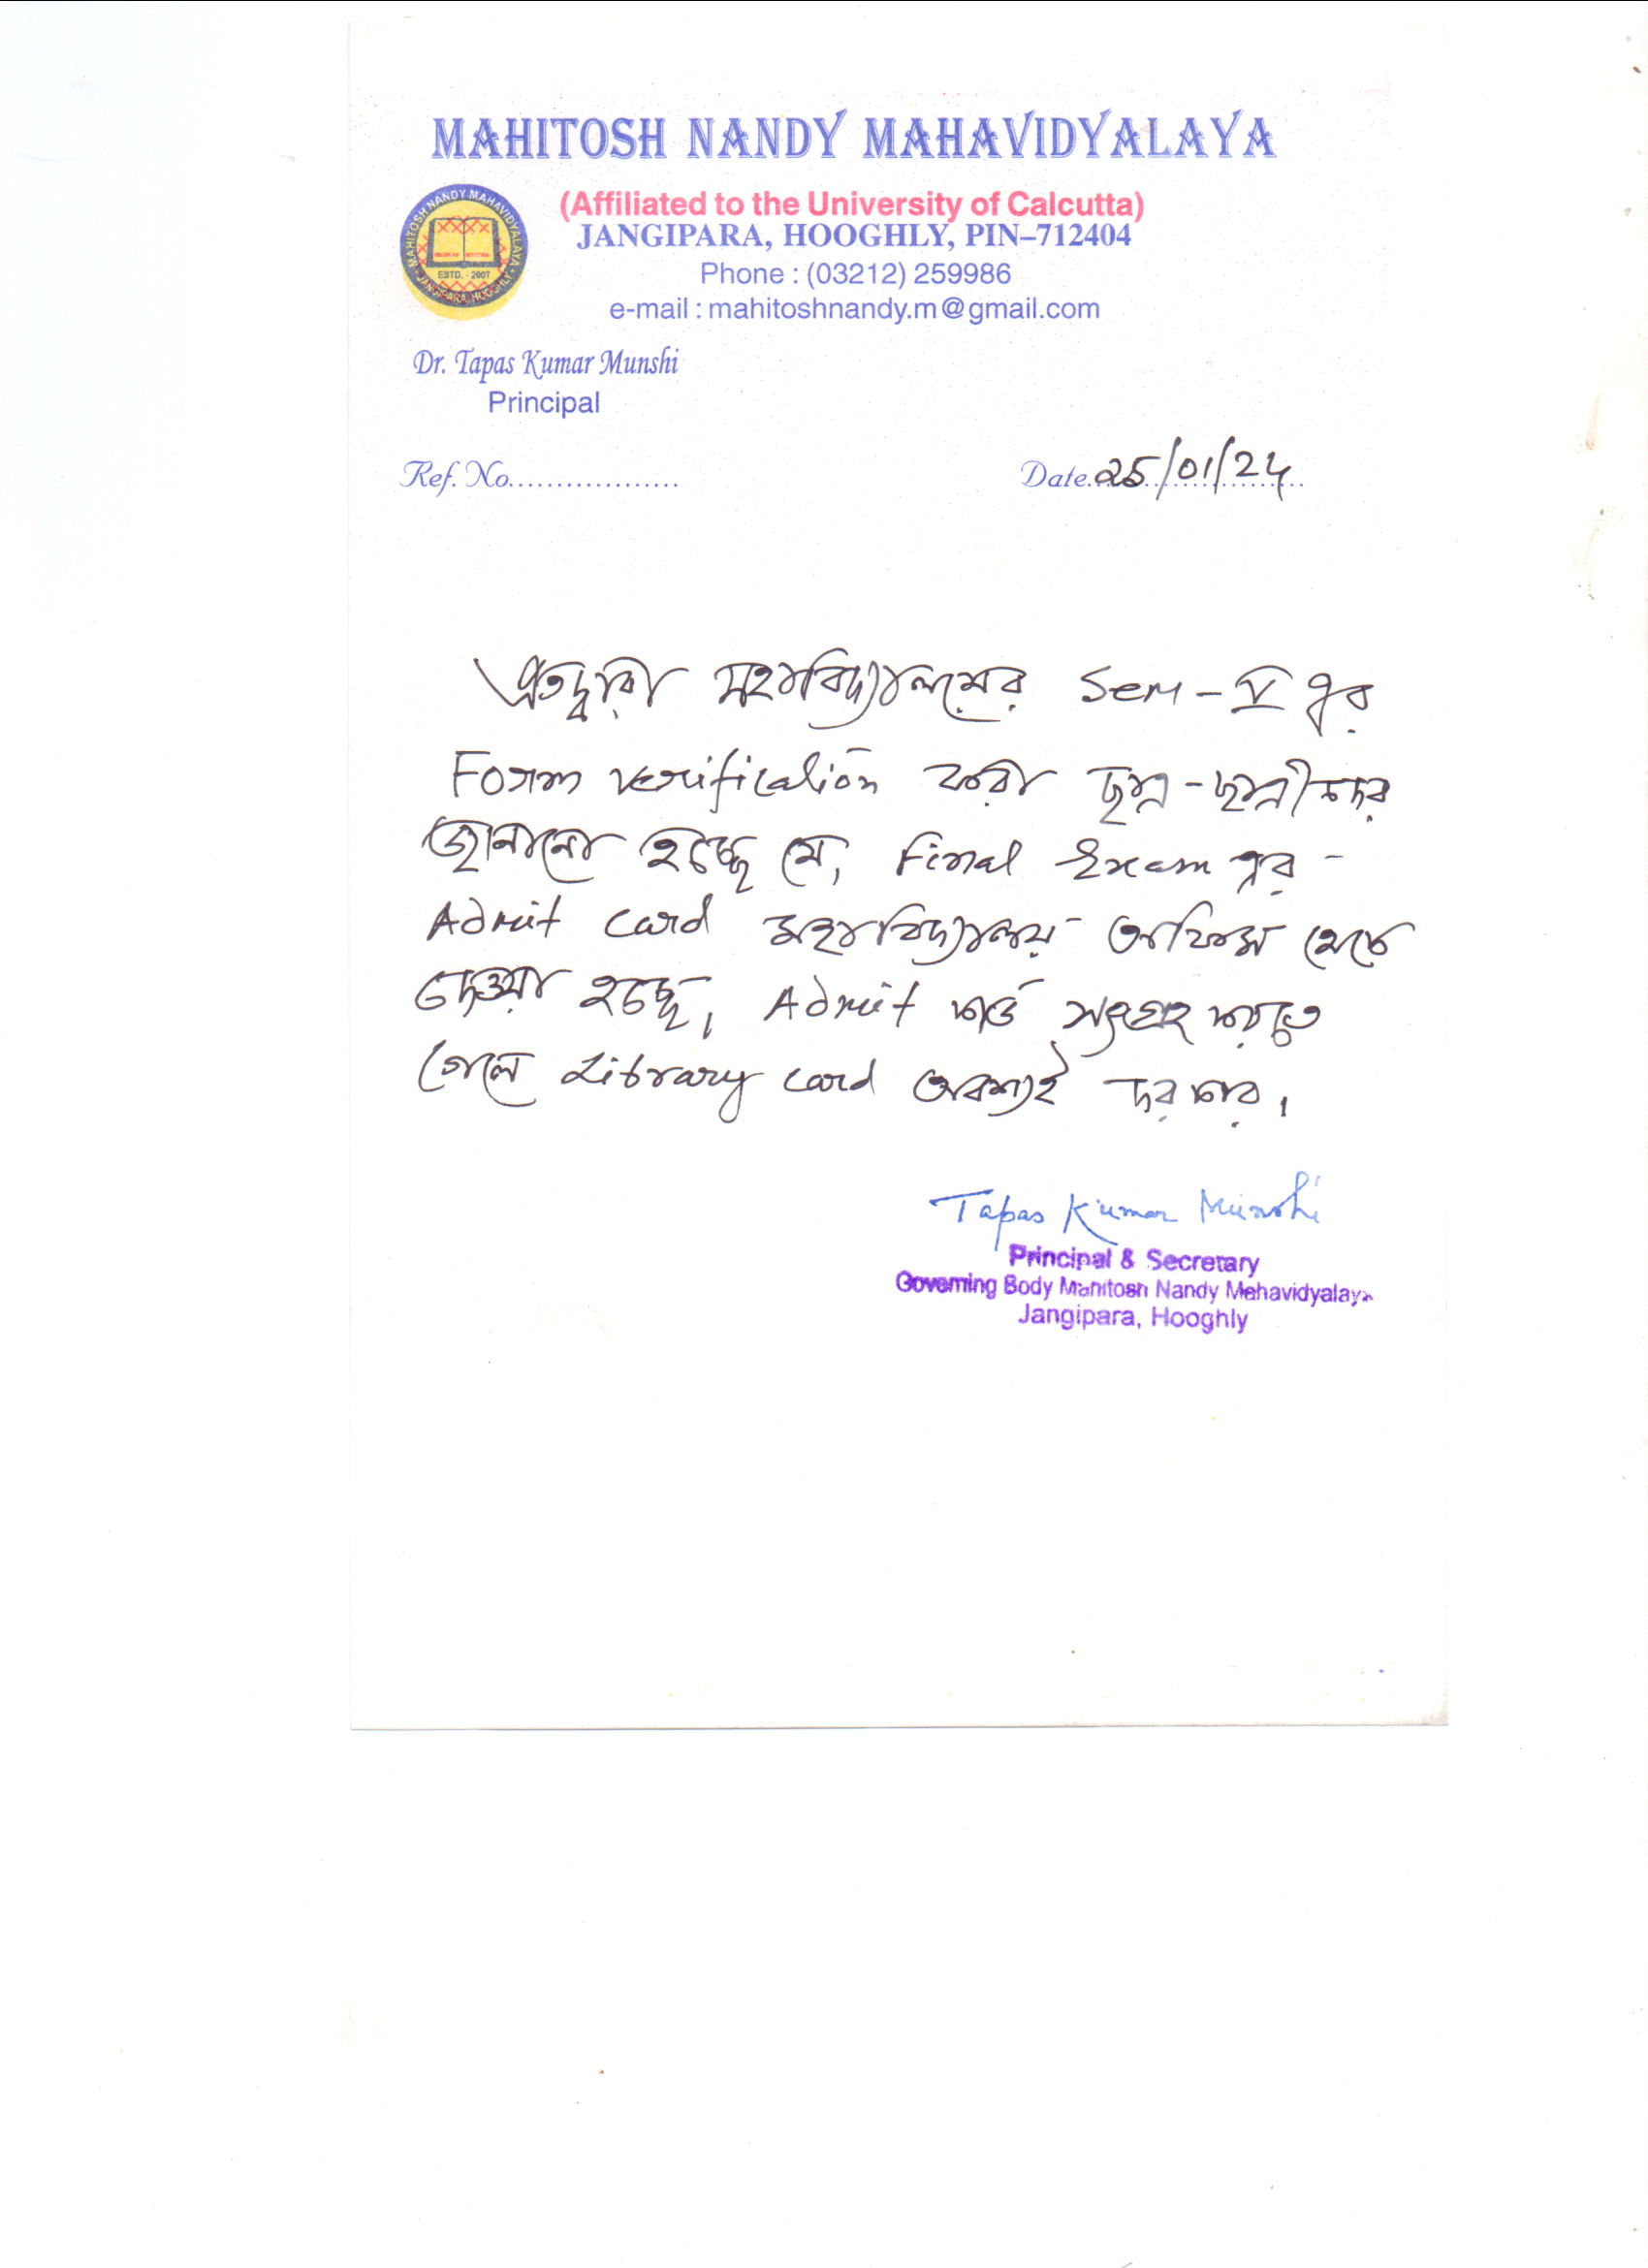 MAHITOSH NANDY MAHAVIDYALAYA
(Affiliated to the University of Calcutta)
JANGIPARA, HOOGHLY, PIN–712404
Phone : (03212) 259986
e-mail : mahitoshnandy.m@gmail.com
MAHITOSH NANDY MAHAVIDYALAYA
ESTD. - 2007
JANGIPARA, HOOGHLY
Dr. Tapas Kumar Munshi
Principal
Ref. No..................
Date 25/01/24
এতদ্বারা মহাবিদ্যালয়ের Sem - V এর
Form verification করা ছাত্র - ছাত্রীদের
জানানো হচ্ছে যে, Final Exam এর -
Admit card মহাবিদ্যালয় অফিস থেকে
দেওয়া হচ্ছে, Admit কার্ড সংগ্রহ করতে
গেলে Library card অবশ্যই দরকার।
Tapas Kumar Munshi
Principal & Secretary
Governing Body Mahitosh Nandy Mahavidyalaya
Jangipara, Hooghly